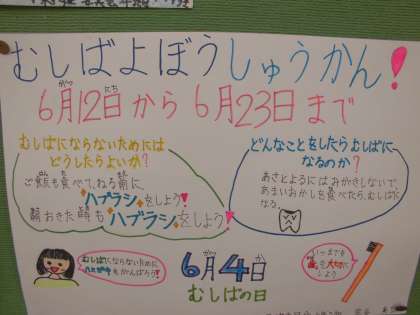 むしばよぼうしゅうかん!
6月12日から6月23日まで
がつ
にち
むしばにならないためには
どうしたらよいか?
ご飯も食べて、ねる前に、
ハブラシをしよう!
朝おきた時も
ハブラシをしよう!
どんなことをしたらむしばに
なるのか?
あさとよるにはおかきしないで、
あまいおかしを食べたら、むしばに
なる。
むしばにならないために
6月4日
がつ
か
むしばの日
いつまでも
歯を大切に
しよう